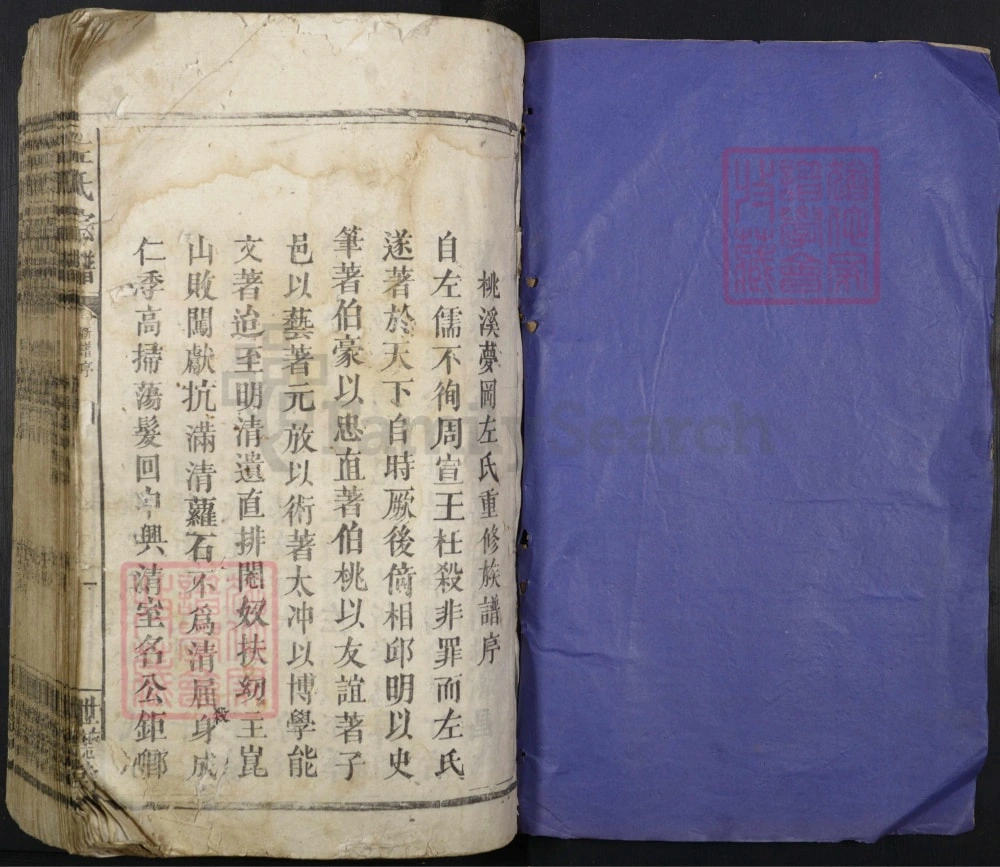 桃溪夢岡左氏重修族譜序
自左儒不徇周宣王枉殺非罪而左氏
遂著於天下自時厥後倚相邱明以史
筆著伯豪以忠直著伯桃以友誼著子
邑以藝著元放以術著太冲以博學能
文著迨至明清遺直排閹奴扶幼主崑
山敗闖獻抗滿清蘿石不為清屈身成
仁季高掃蕩髮回中興清室名公鉅卿
殺
左氏宗譜
序
一
FamilySearch